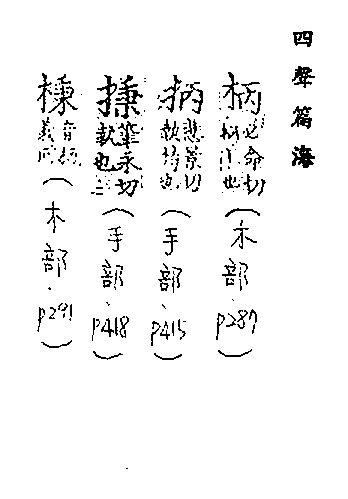 四聲篇海
柄必命切柯也（木部、p287）
抦悲景切執持也（手部、p415）
㨀筆永切執也二（手部、p418）
棅音柄義同（木部、p291）